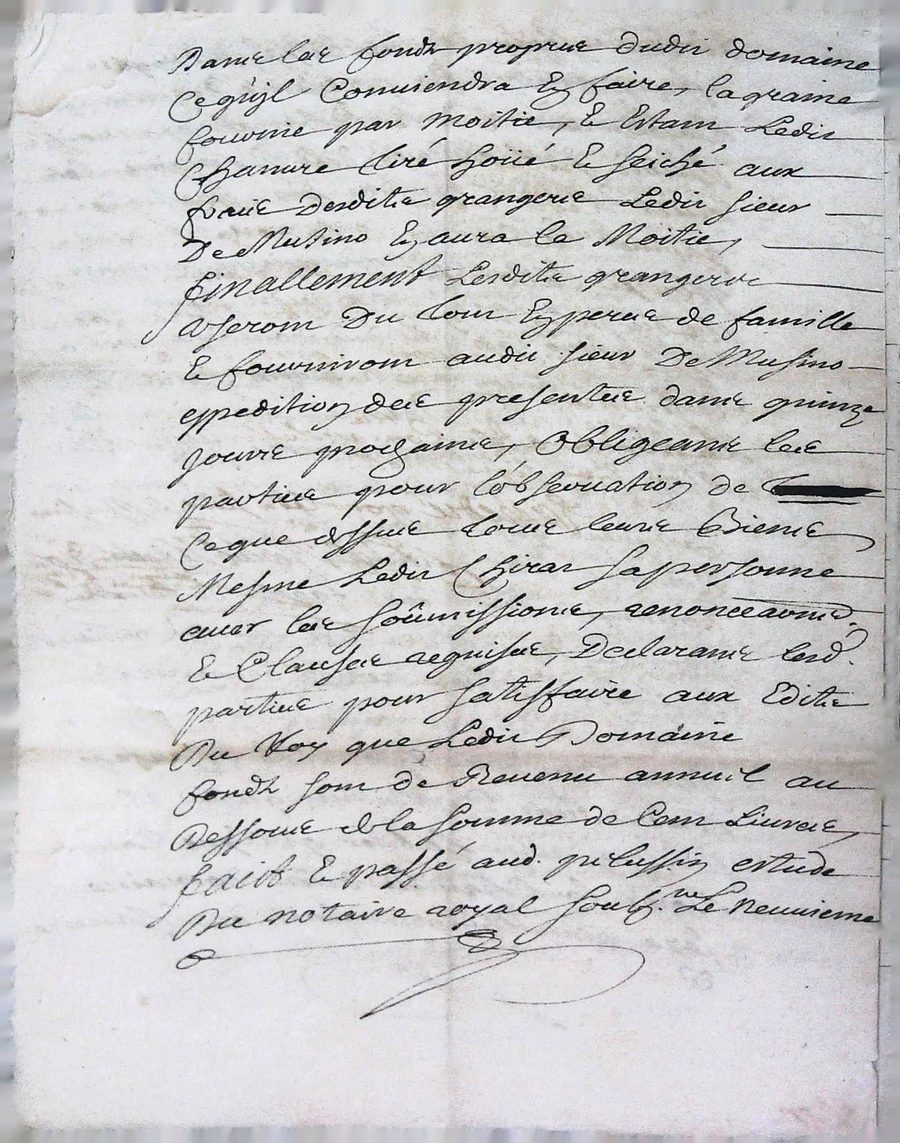 Dans les fondz propres dudit domaine
ce quil conviendra En faire, la graine
fournie par moitié, Et Estant Ledit
Chanvre tiré Et seiché aux
frais Desditz grangers Ledit sieur
De Musino En aura la Moitié,
finallement Lesditz grangers
useront Du tout En peres de famille
Et fourniront audit sieur De Musino
expedition des presentes dans quinze
jours prochains, Obligeants les
parties pour l'observation de
Ceque dessus tous leurs Biens
Mesme Ledit Chirat sa personne
avec les soûmissions, renonceaons
Et Clauses requises, Declarants lesd.
parties pour satisfaire aux Editz
Du Roy que Ledit Domaine
fondz sont de Revenu annuil au
Dessous de la somme de Cent Livres,
faict Et passé aud. pelussin estude
Du notaire royal soubz.né Le neuvieme